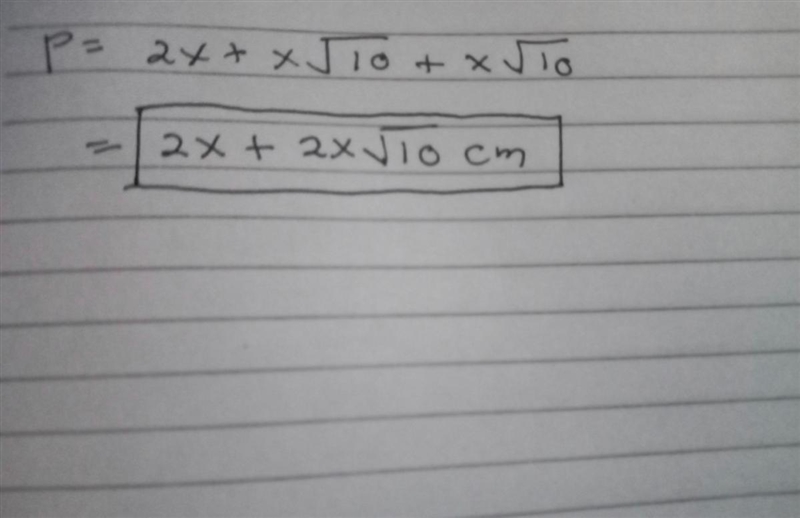 P= 2x + x√10 + x√10
= 2x + 2x√10 cm